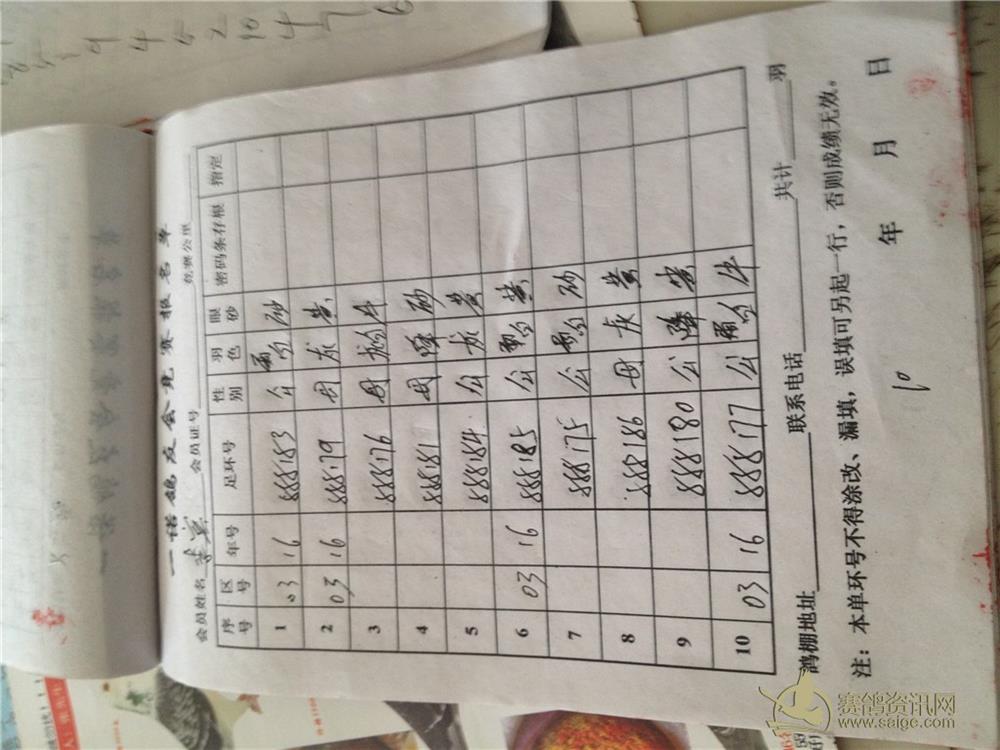 一诺鸽友会竞赛报名单
会员姓名 会员证号 竞赛公里
序号 区号 年号 足环号 性别 羽色 眼砂 密码条存根 指定
1 03 16 888183 公 雨白 砂
2 03 16 888179 母 灰 黄
3 888176 母 牛
4 888181 母 绛 砂
5 888184 公 灰 黄
6 03 16 888185 公 黄
7 888175 公 砂
8 888186 母 灰 黄
9 888180 公 绛 黄
10 03 16 888177 公 雨白 牛
鸿棚地址 联系电话 共计 羽
注：本单环号不得涂改、漏填，误填可另起一行，否则成绩无效。
年 月 日
10
赛鸽资讯网
www.saige.com